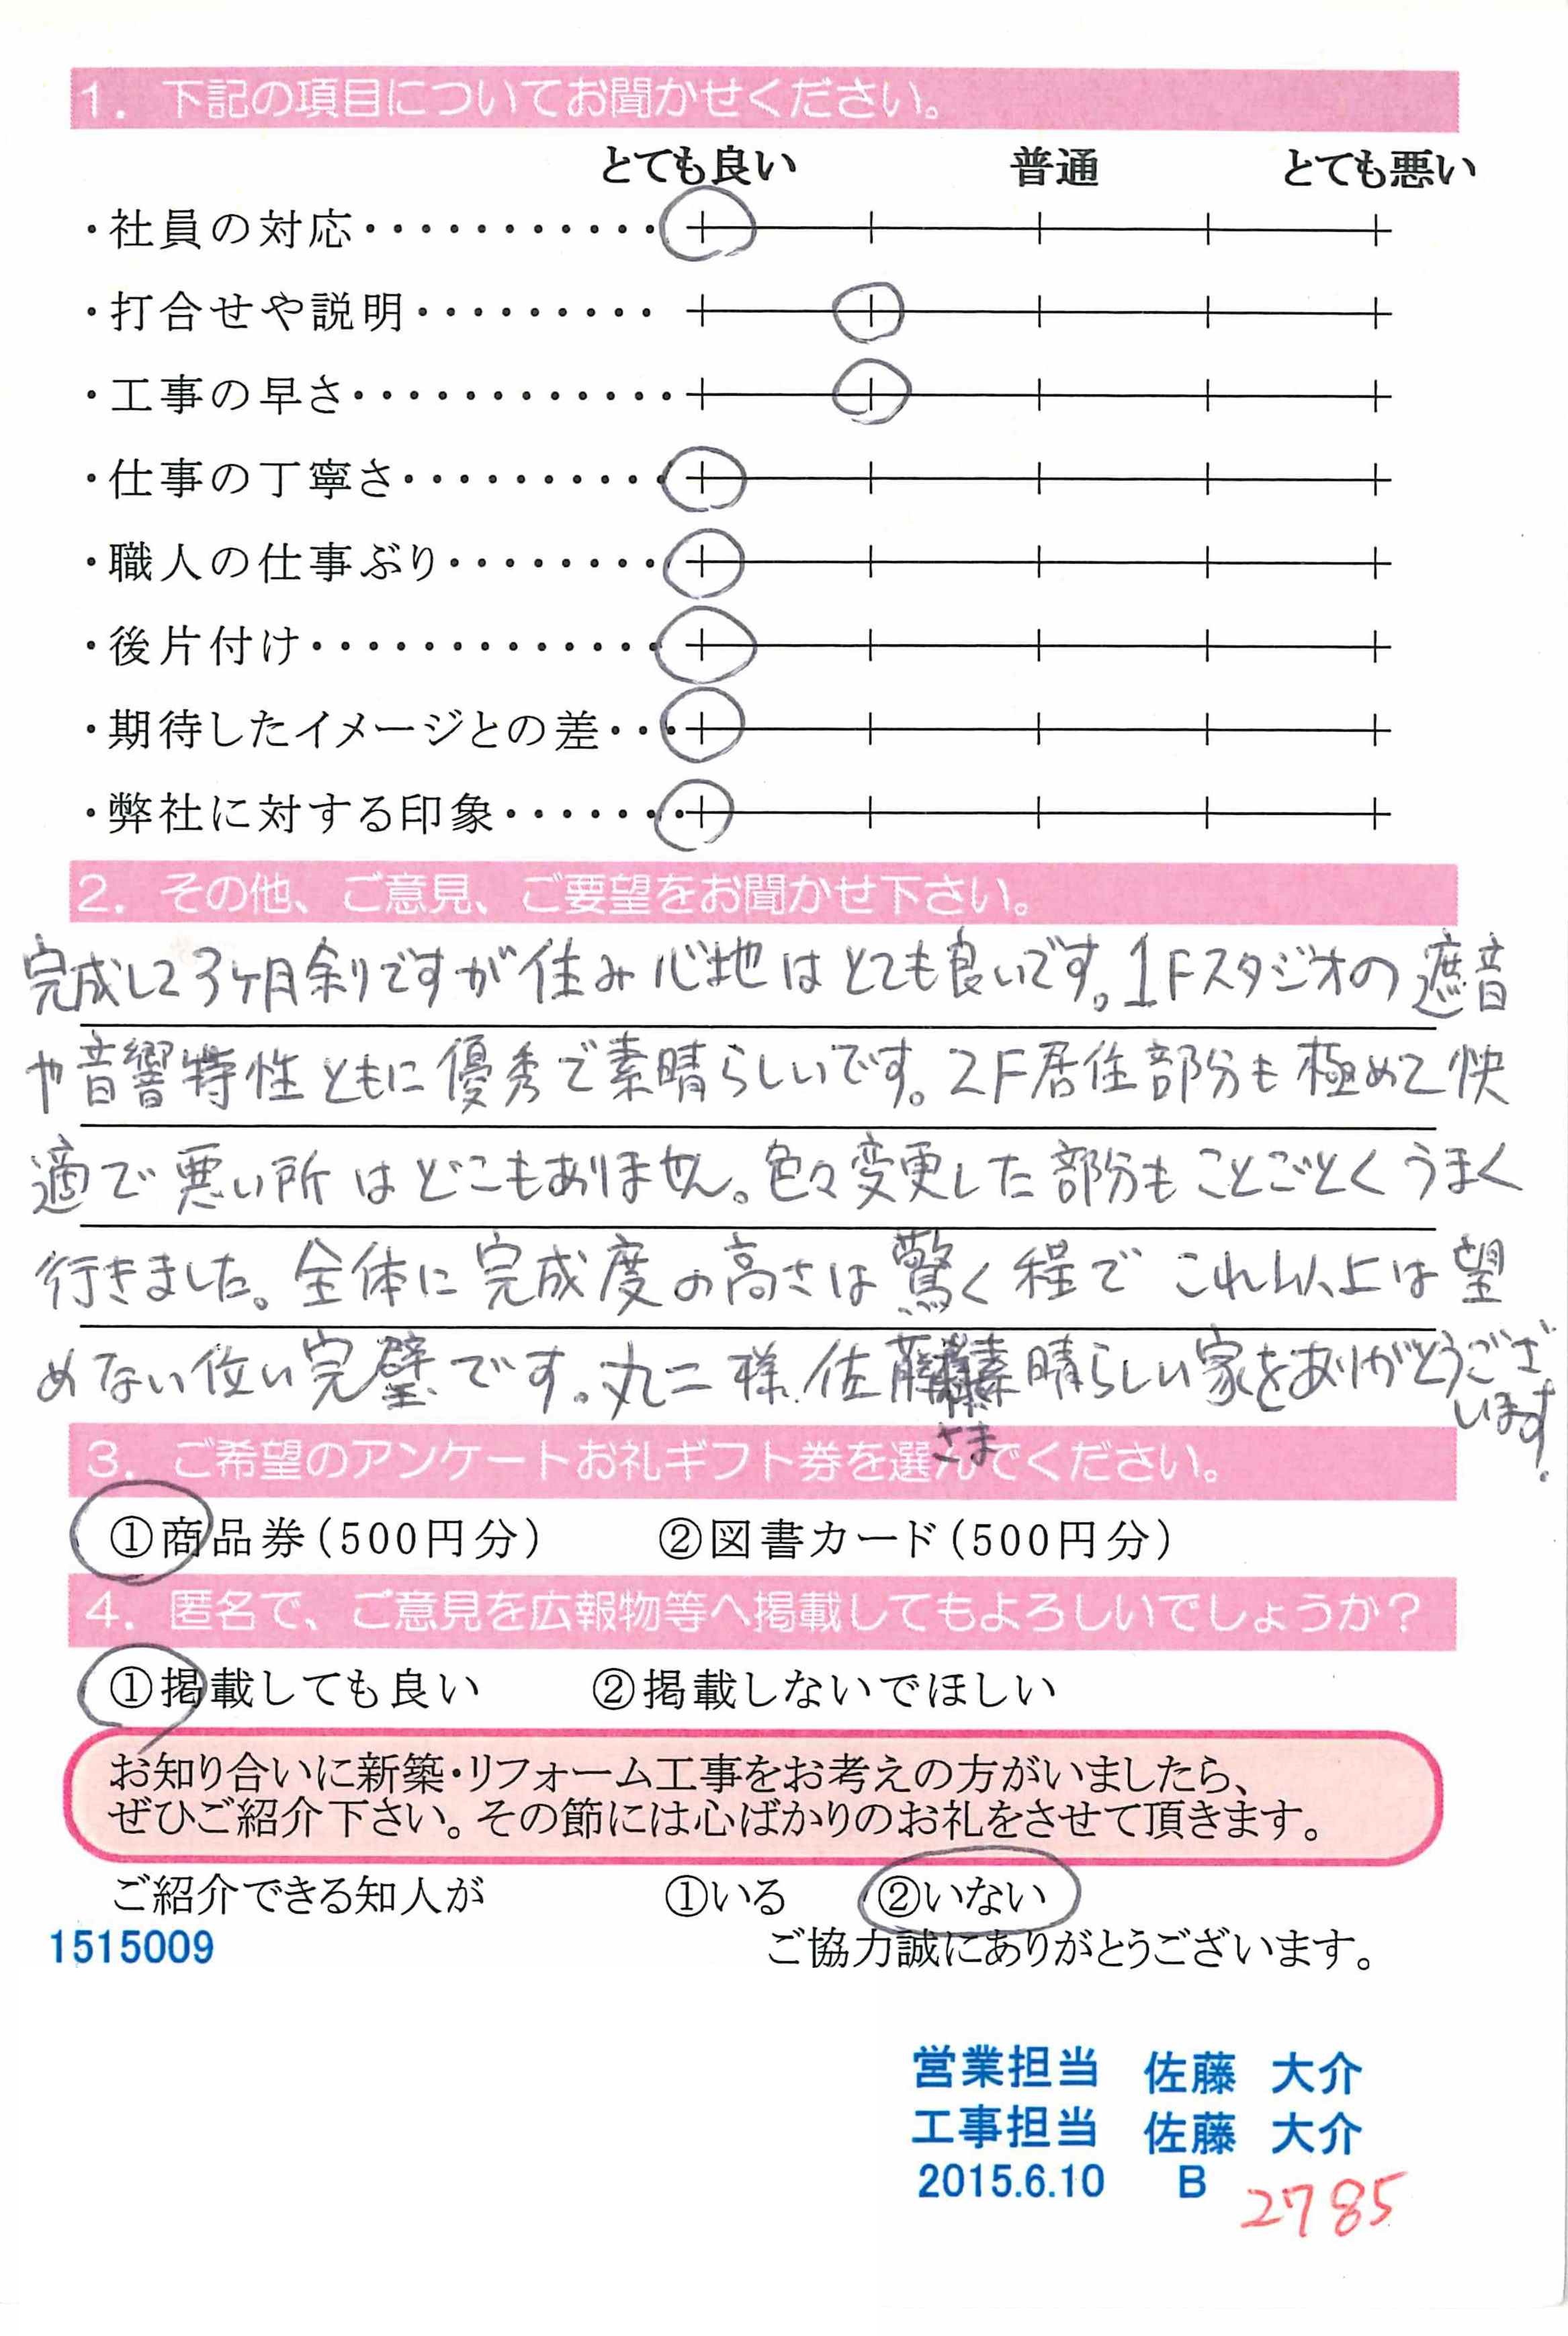 1. 下記の項目についてお聞かせください。
とても良い 普通 とても悪い
・社員の対応・・・・・・・・・・・
・打合せや説明・・・・・・・・・
・工事の早さ・・・・・・・・・・・・
・仕事の丁寧さ・・・・・・・・・・
・職人の仕事ぶり・・・・・・・・
・後片付け・・・・・・・・・・・・・
・期待したイメージとの差・・・
・弊社に対する印象・・・・・・・
2. その他、ご意見、ご要望をお聞かせ下さい。
完成して3ヶ月余りですが住み心地はとても良いです。1Fスタジオの遮音
や音響特性ともに優秀で素晴らしいです。2F居住部分も極めて快
適で悪い所はどこもありません。色々変更した部分もことごとくうまく
行きました。全体に完成度の高さは驚く程でこれ以上は望
めない位い完璧です。丸二様.佐藤素晴らしい家をありがとうござ
います.
さま
3. ご希望のアンケートお礼ギフト券を選んでください。
①商品券(500円分) ②図書カード(500円分)
4. 匿名で、ご意見を広報物等へ掲載してもよろしいでしょうか?
①掲載しても良い ②掲載しないでほしい
お知り合いに新築・リフォーム工事をお考えの方がいましたら、
ぜひご紹介下さい。その節には心ばかりのお礼をさせて頂きます。
ご紹介できる知人が ①いる ②いない
1515009 ご協力誠にありがとうございます。
営業担当 佐藤 大介
工事担当 佐藤 大介
2015.6.10 B 2785